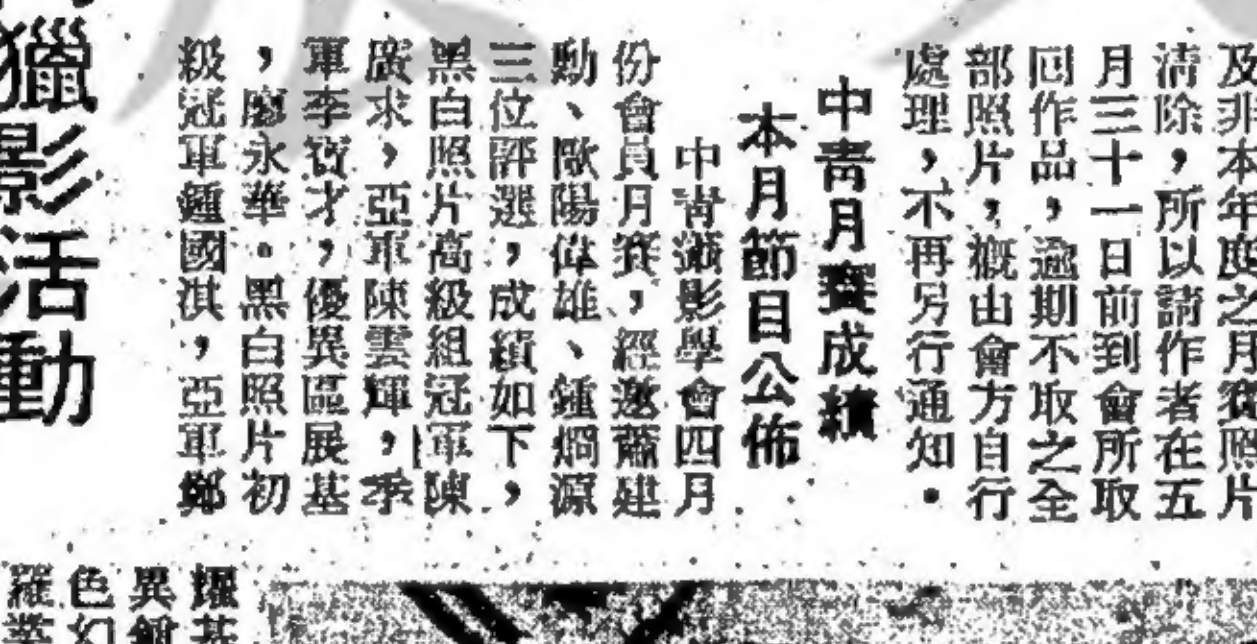 及非本年度之月賽照片
清除，所以請作者在五
月三十一日前到會所取
回作品，逾期不取之全
部照片，概由會方自行
處理，不再另行通知。
中青月賽成績
本月節目公佈
中青攝影學會四月
份會員月賽，經邀蕭建
勳、歐陽偉雄、鍾烱源
三位評選，成績如下，
黑白照片高級組冠軍陳
廣求，亞軍陳雲輝，季
軍李寶才，優異區展基
，廖永華。黑白照片初
級冠軍鍾國淇，亞軍鄭
獵影活動
異
色幻
羅